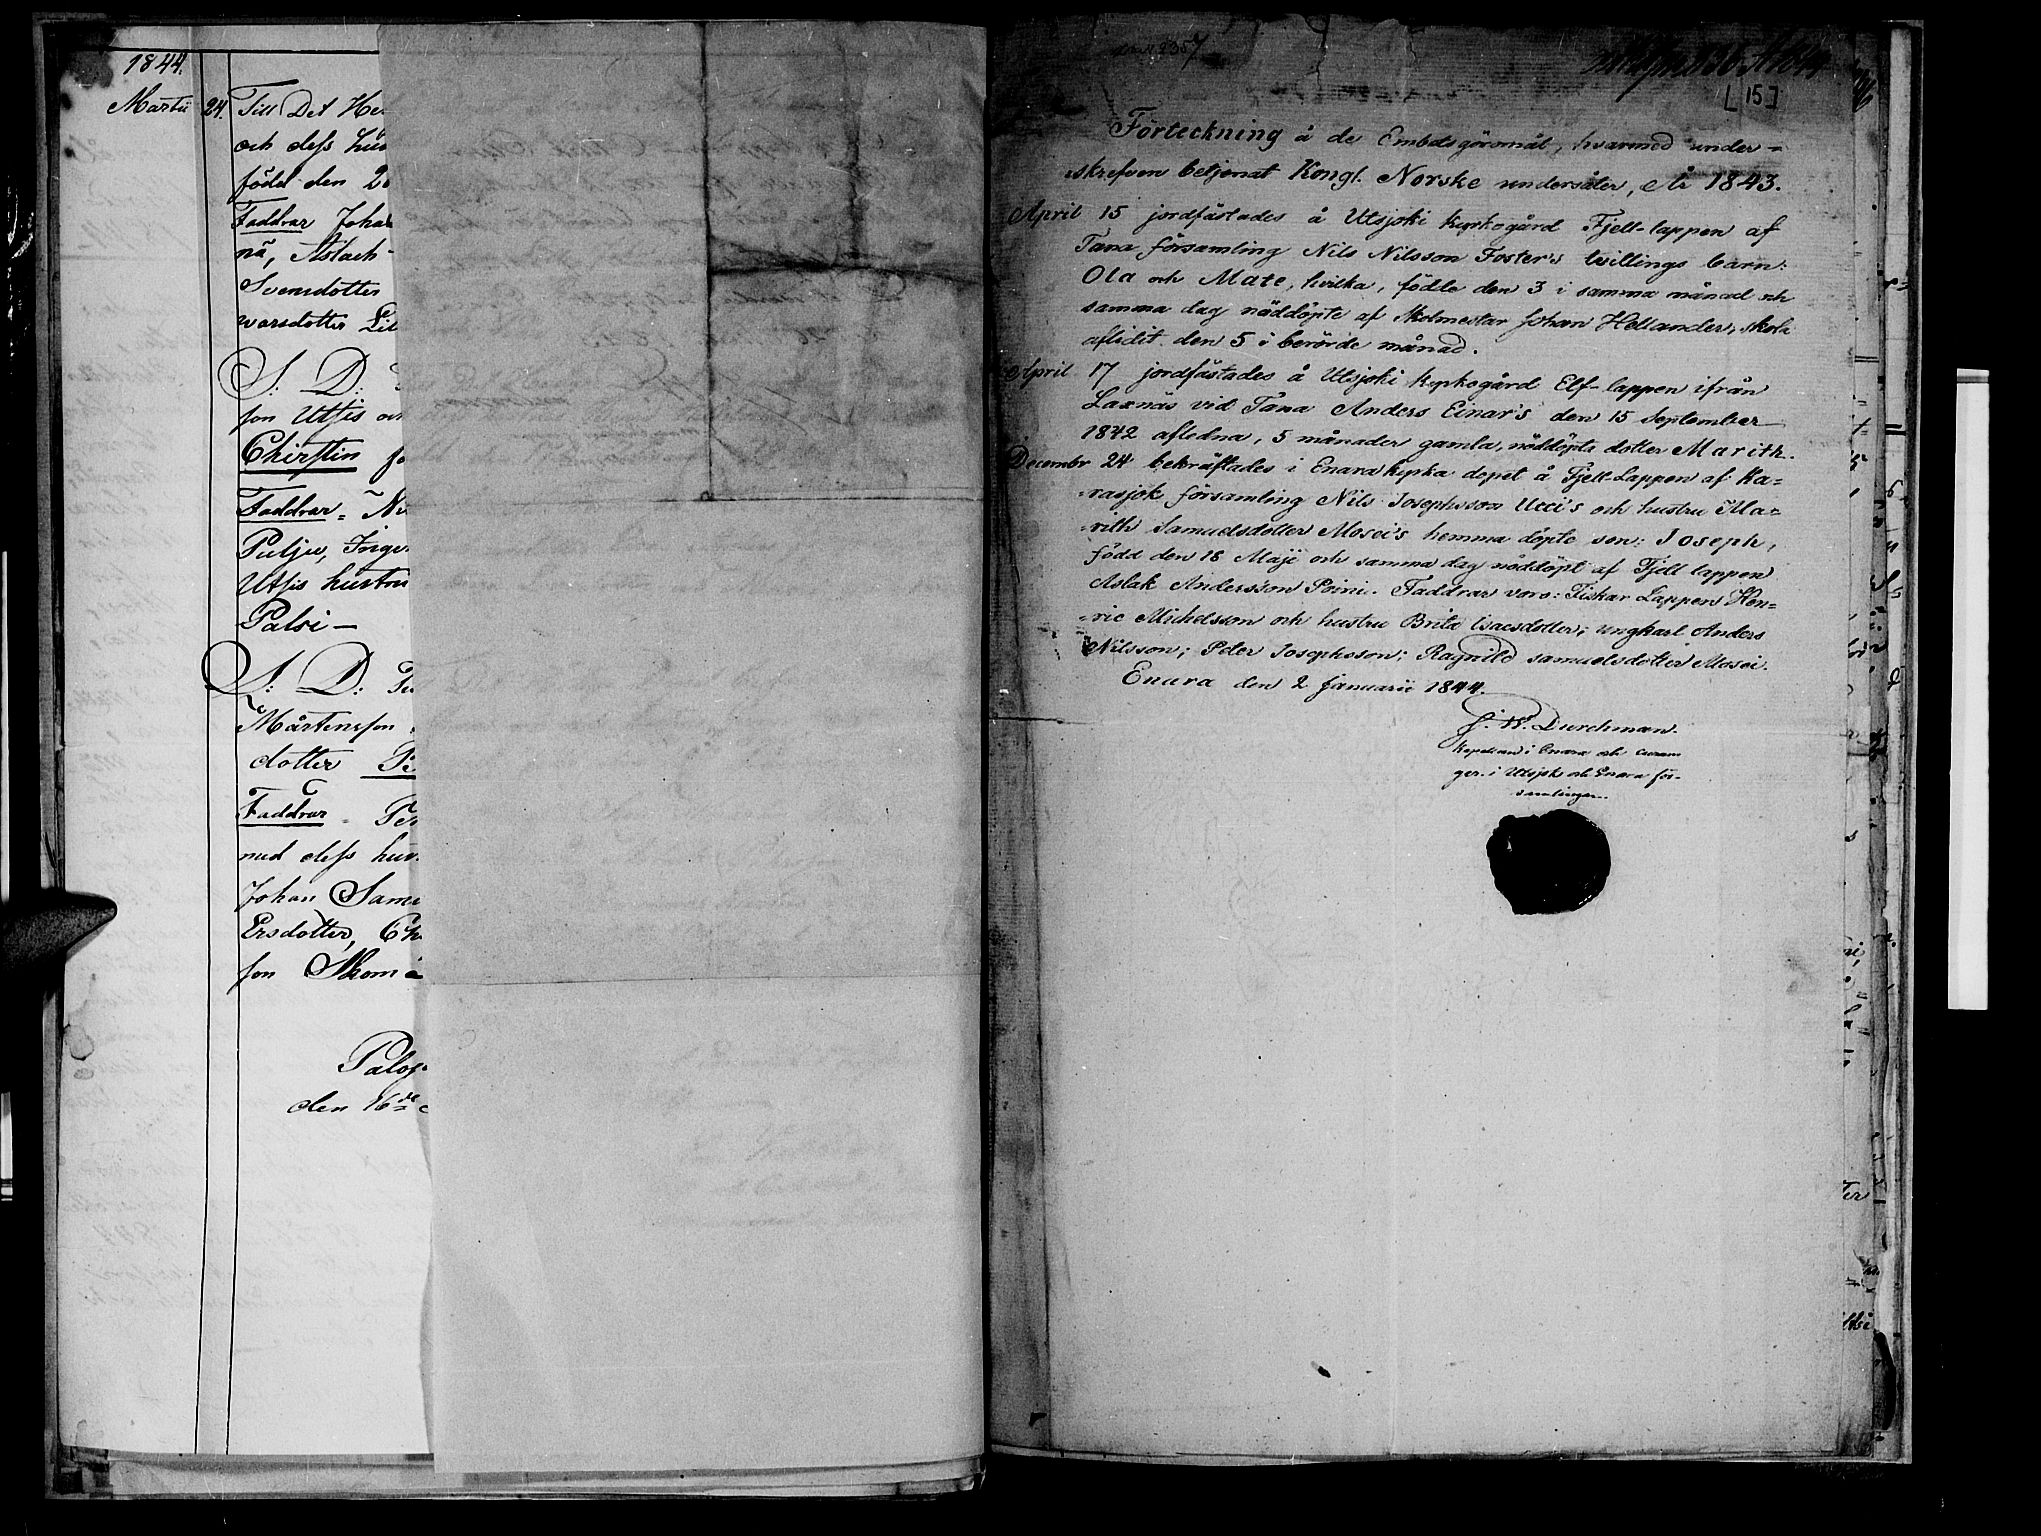 1844.
Martii 24. Till Det He
och dess hus
född den 2
Faddrar Joha
nä, Aslach-
Svensdotter
warsdotter Lis
S. D:
son Utsis och
Chirstin fö
Faddrar = Ni
Pulju, Inge
Utsis hustru
Palsi —
S: D:
Mårtensson
dotter
Faddrar - Per
med dess hus
Johan Samu
Ersdotter, Ch
son Skomä
Paloj
den 16de
2357
[15]
Förteckning å de Embetsgöromål, hvarmed under-
skrefven betjenat Kongl. Norske undersåter, År 1843.
April 15 jordfästades å Utsjoki kyrkogård Fjell-lappen af
Tana församling Nils Nilsson Foster's tvillings barn:
Ola och Mate, hvilka, födde den 3 i samma månad och
samma dag nöddöpte af Skolmestar Johan Hellander, skola
aflidit den 5 i berörde månad.
April 17 jordfästades å Utsjoki kyrkogård Elf-lappen ifrån
Laxnäs vid Tana Anders Einar's den 15 September
1842 afledna, 5 månader gamla, nöddöpta dotter Marith.
Decembr 24 bekräftades i Enara kyrka dopet å Fjell-Lappen af Ka-
-rasjok församling Nils Josephsson Ucci's och hustru Ma-
-rith Samuelsdotter Mosei's hemma döpte son: Joseph,
född den 18 Maji och samma dag nöddöpt af Fjell lappen
Aslak Andersson Poini. Faddrar voro: Fiskar Lappen Hen-
-ric Michelsson och hustru Brita Isacsdotter; ungkarl Anders
Nilsson; Peter Josephsson; Ragnild Samuelsdotter Mosei.
Enara den 2 Januarii 1844.
J. W. Durchman.
Kapellan i Enara och
i Utsjoki och Enara för-
samlingar.